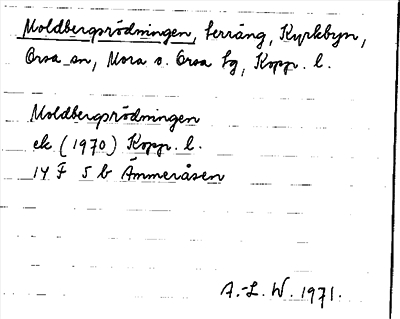 Moldbergsrödningen, terräng, Kyrkbyn,
Orsa sn, Mora o. Orsa tg, Kopp. l.
Moldbergsrödningen
ek (1970) Kopp. l.
14 F 5 b Ämmeråsen
A.-L. W. 1971.